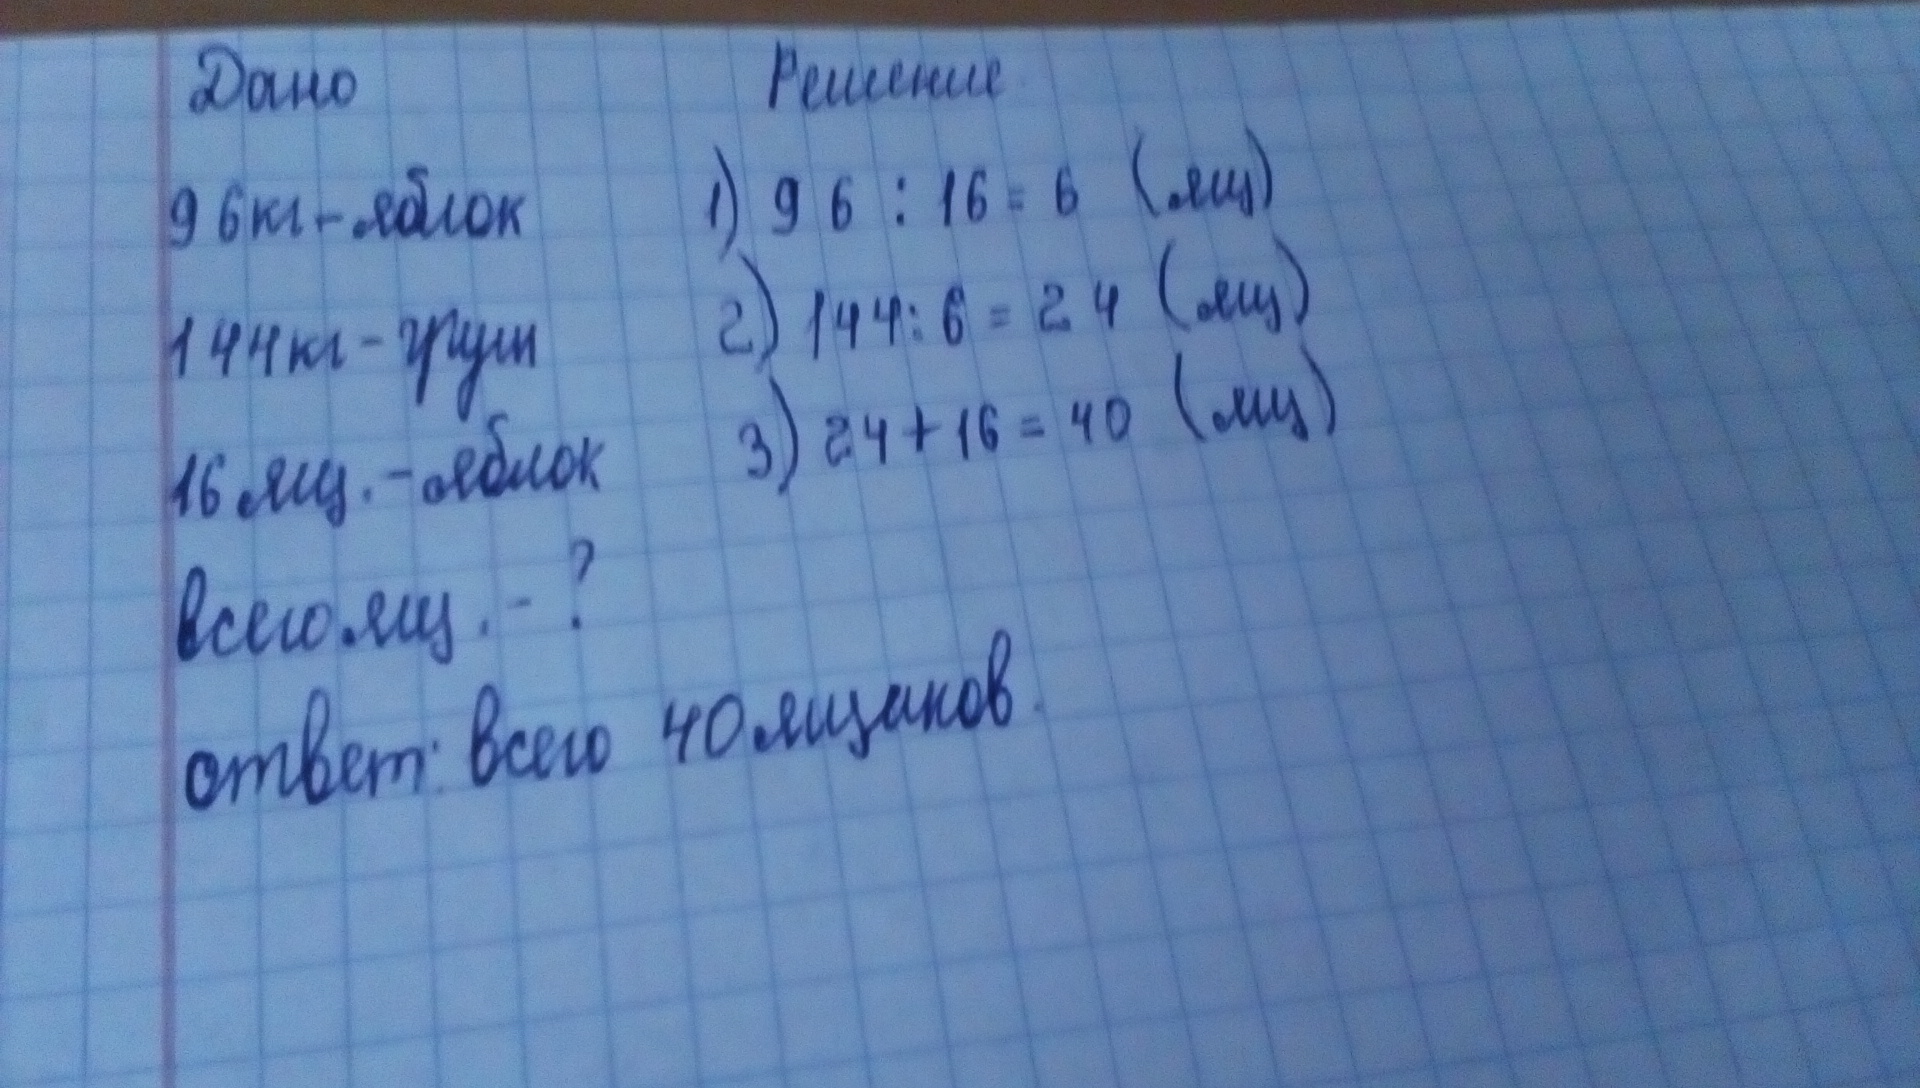 Дано
96кг - яблок
144кг - груш
16 ящ. - яблок
всего ящ. - ?
ответ: всего 40 ящиков.
Решение
1) 96 : 16 = 6 (ящ)
2) 144 : 6 = 24 (ящ)
3) 24 + 16 = 40 (ящ)